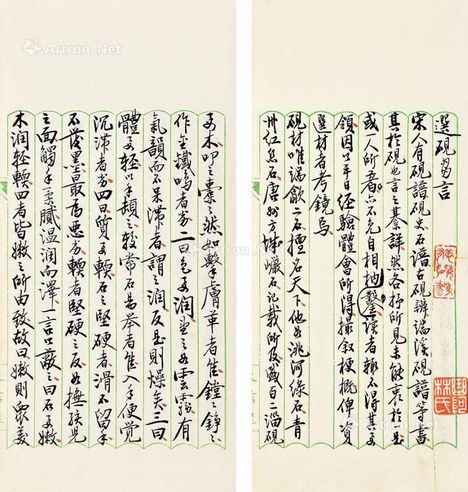 Artron.Net
Artron.Net
選硯芻言
宋人有硯譜硯史石譜古硯辨端溪硯譜等書
其於硯也言之綦詳然各抒所見未能衷於是
或一人所著亦不免自相讀者輒不得其要
領因以平日經驗體會所得撮叙梗概俾資
選材者考鏡焉
硯材唯端歙二石擅名天下他如洮河綠石青
州紅絲石唐州方城石記載所及淄硯
林氏
木叩之橐然如擊膚革者佳鏗錚
作金鐵鳴者劣二曰色要潤望之如雲霞有
氣韻而不呆滯者謂之潤反是則燥矣三曰
體要輕以手之較常石為舉者佳入手便覺
沉滯者劣四曰質要輭石之堅硬者滑不留手
不發墨最為惡劣輭者堅硬之反如撫孩兒
之面觸手柔膩溫潤而澤一言以蔽之曰石要嫩
木潤輕輭四者皆嫩之所由致故曰嫩則眾美